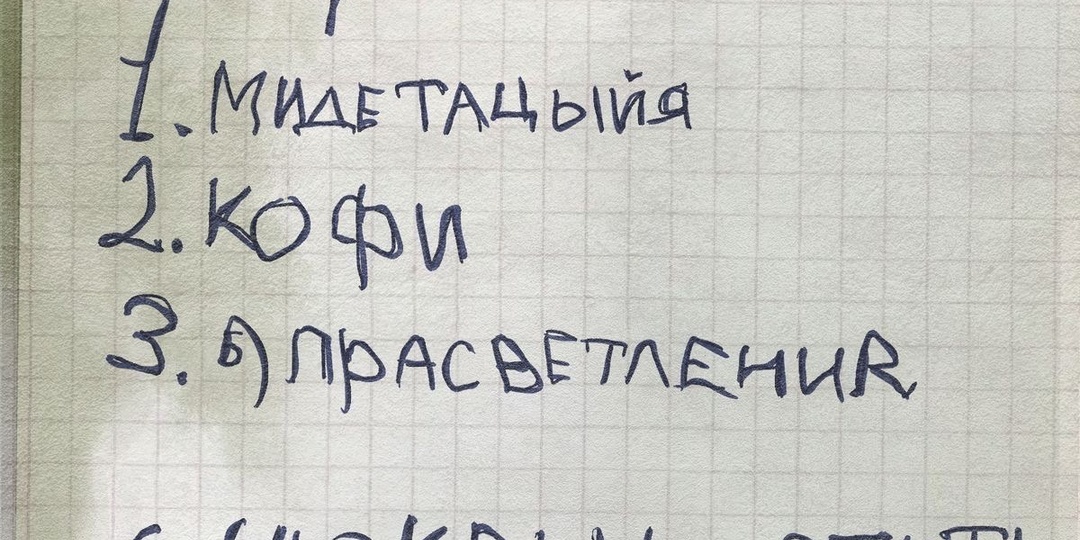 1. МИДЕТАЦЫЙЯ
2. КОФИ
3. Б) ПРАСВЕТЛЕНИЯ